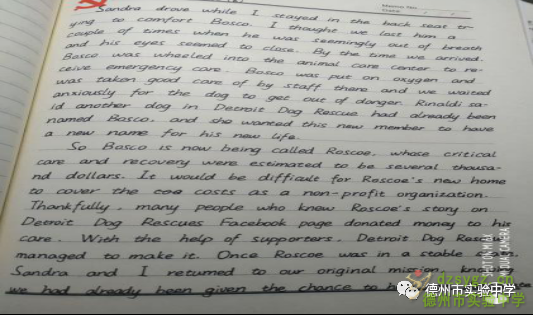 Sandra drove while I stayed in the back seat tr-
ying to comfort Bosco. I thought we lost him a
couple of times when he was seemingly out of breath
and his eyes seemed to close. By the time we arrived.
Bosco was wheeled into the animal care center to re-
ceive emergency care. Bosco was put on oxygen and
was taken good care of by staff there and we waited
anxiously for the dog to get out of danger. Rinaldi sa-
id another dog in Detroit Dog Rescue had already been
named Bosco, and she wanted this new member to have
a new name for his new life.
So Bosco is now being called Roscoe, whose critical
care and recovery were estimated to be several thousa-
nd dollars. It would be difficult for Roscoe's new home
to cover the costs as a non-profit organization.
Thankfully, many people who knew Roscoe's story on
Detroit Dog Rescues Facebook page donated money to his
care. With the help of supporters, Detroit Dog Rescue
managed to make it. Once Roscoe was in a stable
Sandra and I returned to our original mission
we had already been given the chance to
德州市实验中学
dzsyzz.cn
德州市实验中学